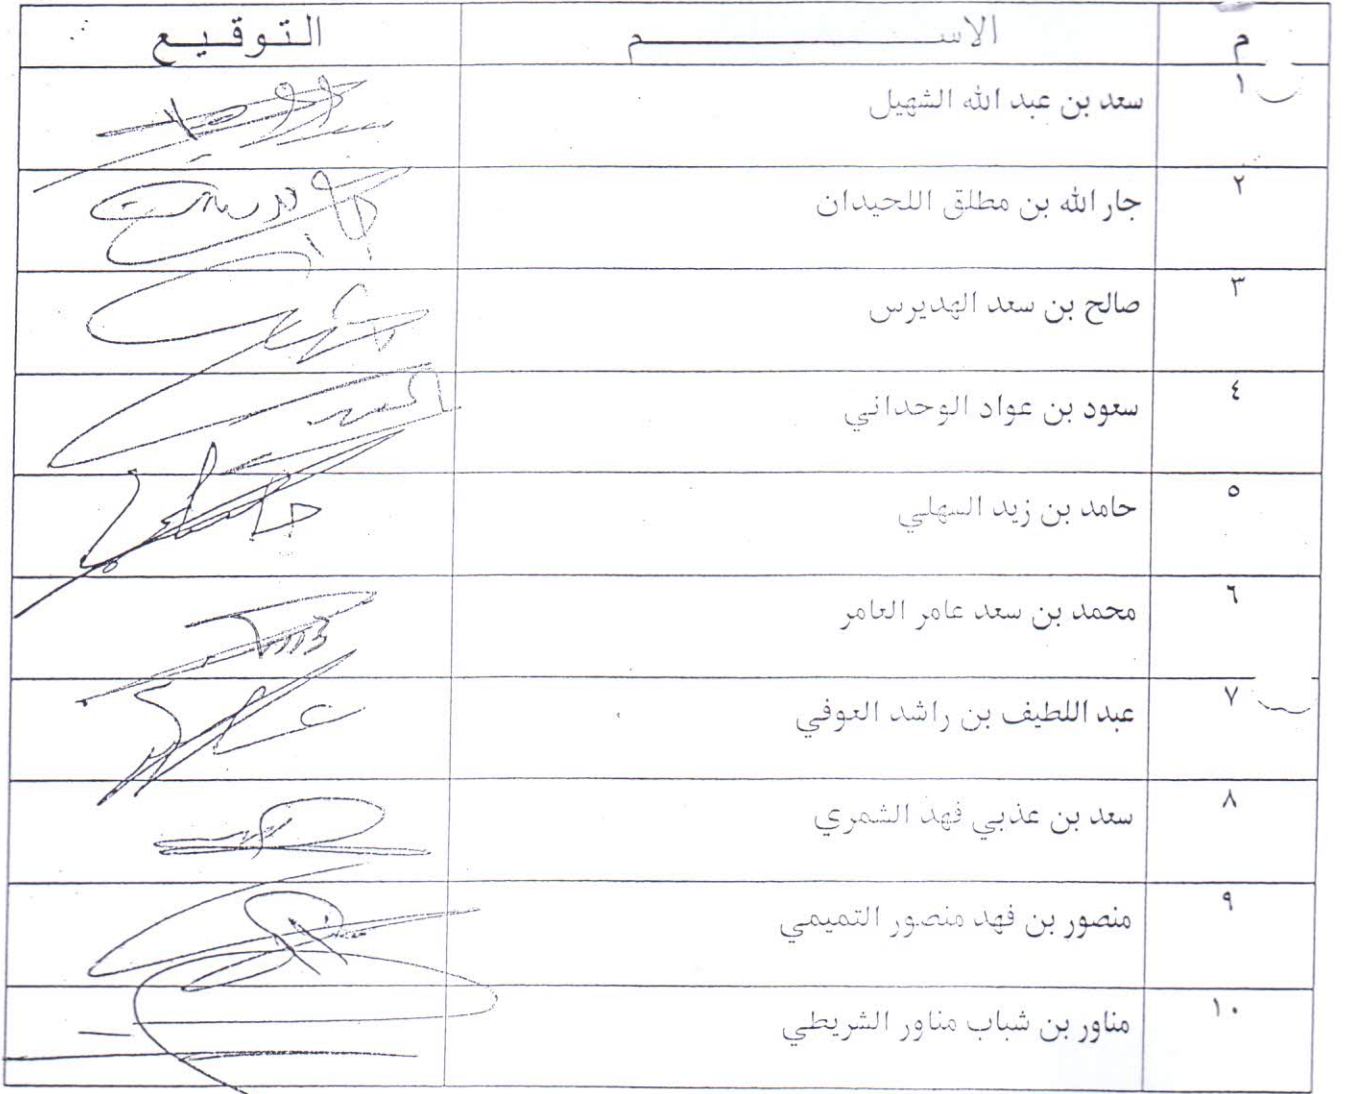 م الاســـــم التوقيع
١ سعد بن عبد الله الشهيل
٢ جار الله بن مطلق اللحيدان
٣ صالح بن سعد الهديرس
٤ سعود بن عواد الوحداني
٥ حامد بن زيد السهلي
٦ محمد بن سعد عامر العامر
٧ عبد اللطيف بن راشد العوفي
٨ سعد بن عذبي فهد الشمري
٩ منصور بن فهد منصور التميمي
١٠ مناور بن شباب مناور الشريطي